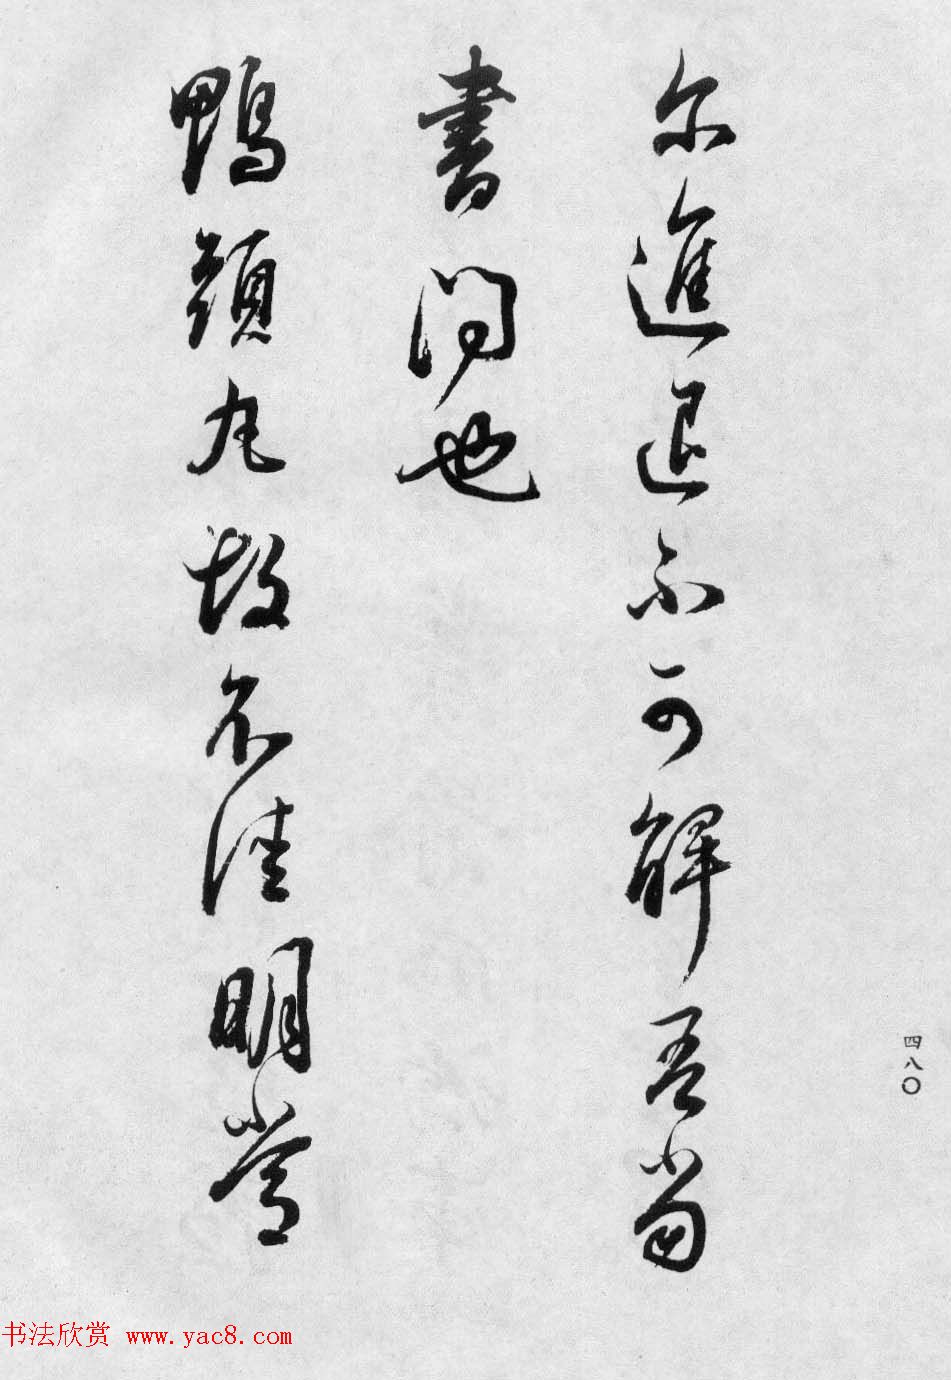 尔進退不可解吾當
書問也
鴨頭丸故不佳明當
四八〇
书法欣赏 www.yac8.com